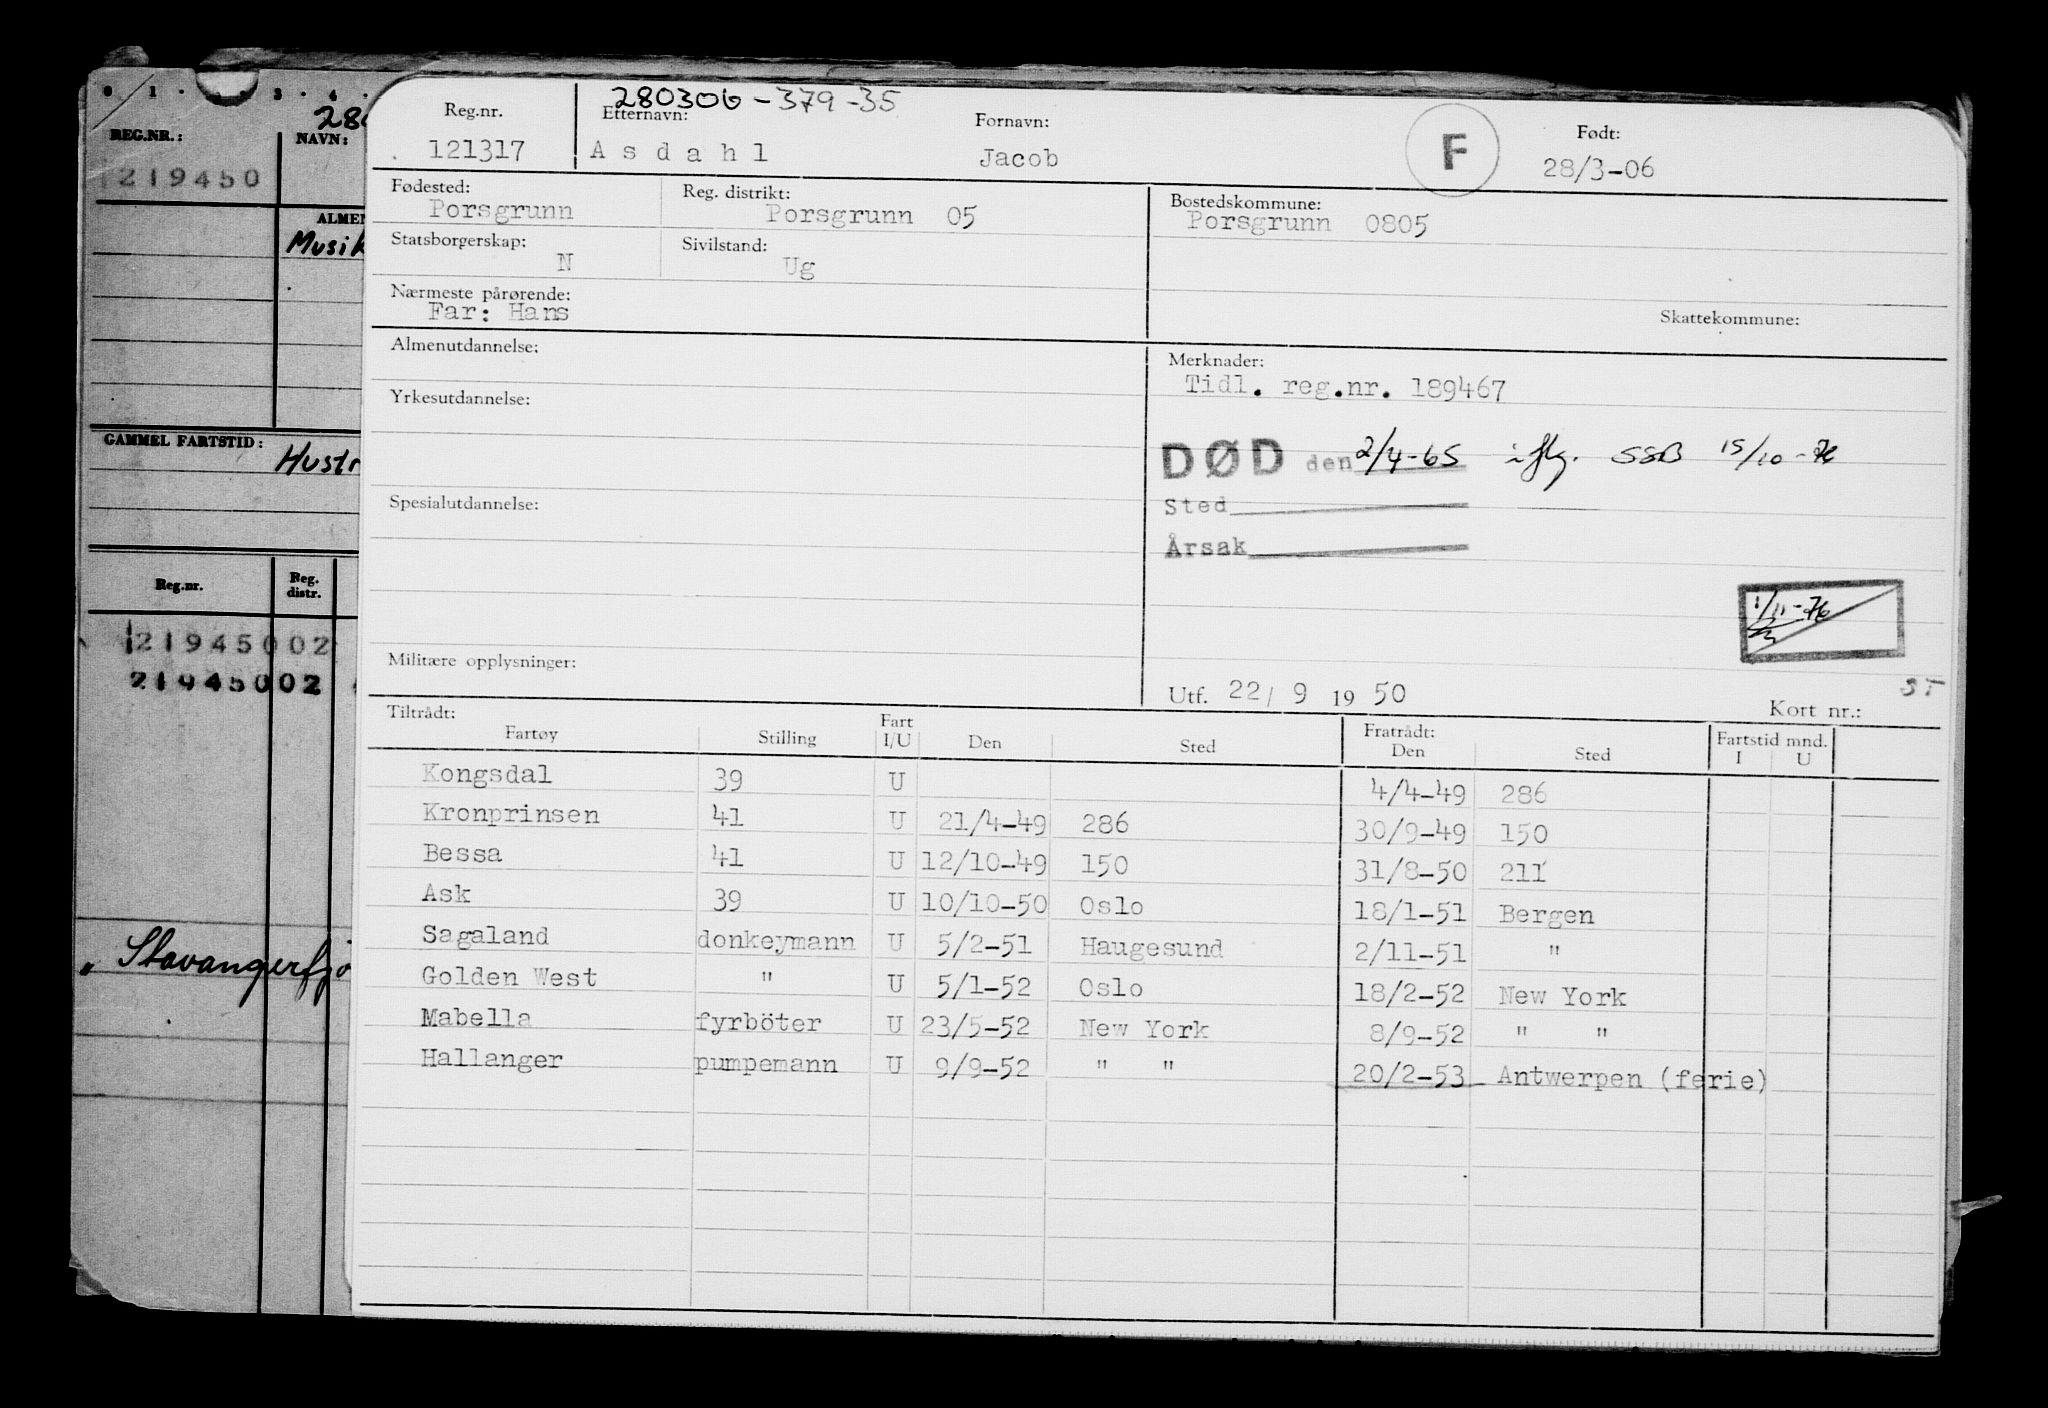 0 1 . . 3 . 4 .
REG.NR.:
NAVN:
219450
ALMEN
Musik
GAMMEL FARTSTID:
Hustr
Reg.nr.
Reg. distr.
21945002
21945002
" Stavangerfjo
280306-379-35
Reg.nr. Etternavn: Fornavn: Født:
121317 Asdahl Jacob F 28/3-06
Fødested: Reg. distrikt: Bostedskommune:
Porsgrunn Porsgrunn 05 Porsgrunn 0805
Statsborgerskap: Sivilstand:
N Ug
Nærmeste pårørende: Skattekommune:
Far: Hans
Almenutdannelse: Merknader:
Tidl. reg.nr. 189467
Yrkesutdannelse:
DØD den 2/4-65 iflg. SSB 15/10-76
Spesialutdannelse: Sted
Årsak
1/11-76
Militære opplysninger:
ST
Utf. 22/ 9 19 50 Kort nr.:
Tiltrådt: Fart Fratrådt: Fartstid mnd.
Fartøy Stilling I/U Den Sted Den Sted I U
Kongsdal 39 U 4/4-49 286
Kronprinsen 41 U 21/4-49 286 30/9-49 150
Bessa 41 U 12/10-49 150 31/8-50 211
Ask 39 U 10/10-50 Oslo 18/1-51 Bergen
Sagaland donkeymann U 5/2-51 Haugesund 2/11-51 "
Golden West " U 5/1-52 Oslo 18/2-52 New York
Mabella fyrböter U 23/5-52 New York 8/9-52 " "
Hallanger pumpemann U 9/9-52 " " 20/2-53 Antwerpen (ferie)